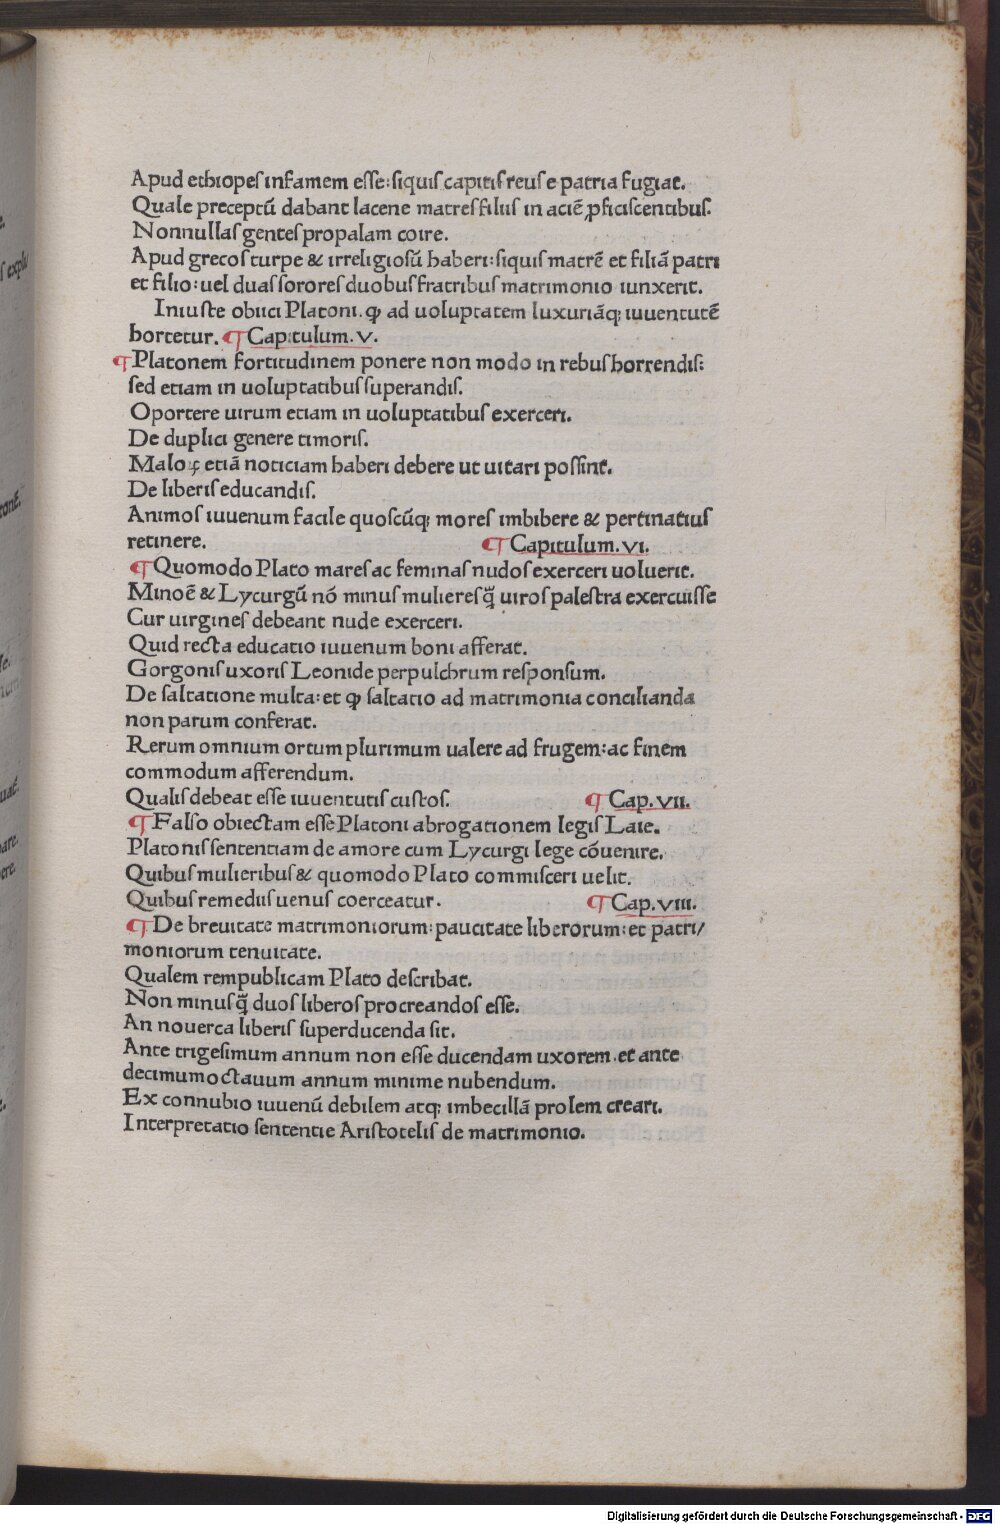 Apud ethiopeſ infamem eſſe: ſiquiſ capitiſ reuſ e patria fugiat.
Quale preceptū dabant lacene matreſ filiis in aciē ꝓficiſcentibuſ.
Nonnullaſ genteſ propalam coire.
Apud grecoſ turpe & irreligioſū haberi: ſiquiſ matrē et filiā patri
et filio: uel duaſ ſororeſ duobuſ fratribuſ matrimonio iunxerit.
Iniuſte obiici Platoni. ꝙ ad uoluptatem luxuriāq; iuuentutē
hortetur. ¶ Capitulum. V.
¶ Platonem fortitudinem ponere non modo in rebuſ horrendiſ:
ſed etiam in uoluptatibuſ ſuperandiſ.
Oportere uirum etiam in uoluptatibuſ exerceri.
De duplici genere timoriſ.
Maloꝝ etiā noticiam haberi debere ut uitari poſſint.
De liberiſ educandiſ.
Animoſ iuuenum facile quoſcūq; moreſ imbibere & pertinatiuſ
retinere. ¶ Capitulum. VI.
¶ Quomodo Plato mareſ ac feminaſ nudoſ exerceri uoluerit.
Minoē & Lycurgū nō minuſ muliereſ q̄ uiroſ paleſtra exercuiſſe
Cur uirgineſ debeant nude exerceri.
Quid recta educatio iuuenum boni afferat.
Gorgoniſ uxoriſ Leonide perpulchrum reſponſum.
De ſaltatione multa: et ꝙ ſaltatio ad matrimonia concilianda
non parum conferat.
Rerum omnium ortum plurimum ualere ad frugem: ac finem
commodum afferendum.
Qualiſ debeat eſſe iuuentutiſ cuſtoſ. ¶ Cap. VII.
¶ Falſo obiectam eſſe Platoni abrogationem legiſ Laie.
Platoniſ ſententiam de amore cum Lycurgi lege cōuenire.
Quibuſ mulieribuſ & quomodo Plato commiſceri uelit.
Quibuſ remediiſ uenuſ coerceatur. ¶ Cap. VIII.
¶ De breuitate matrimoniorum: paucitate liberorum: et patri/
moniorum tenuitate.
Qualem rempublicam Plato deſcribat.
Non minuſ q̄ duoſ liberoſ procreandoſ eſſe.
An nouerca liberiſ ſuperducenda ſit.
Ante trigeſimum annum non eſſe ducendam uxorem. et ante
decimumoctauum annum minime nubendum.
Ex connubio iuuenū debilem atq; imbecillā prolem creari.
Interpretatio ſententie Ariſtoteliſ de matrimonio.
Digitalisierung gefördert durch die Deutsche Forschungsgemeinschaft - DFG